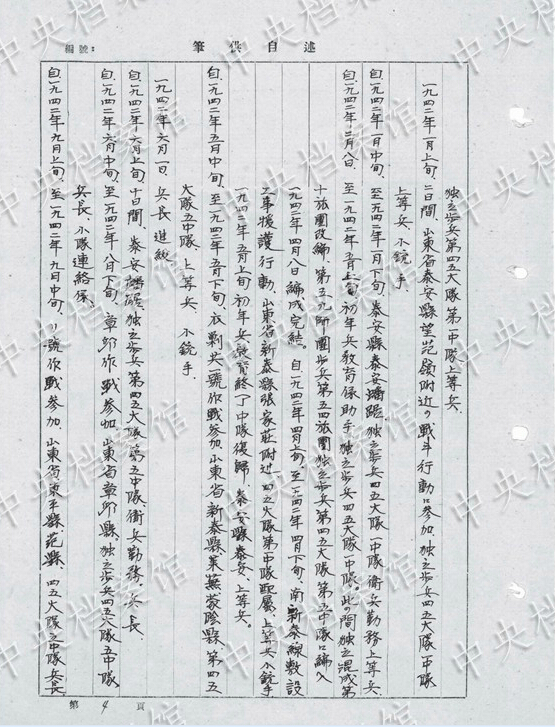 編號：
筆供自述
独立歩兵第四五大隊第一中隊上等兵、
一九四二年一月上旬、二日間、山東省泰安縣望范嶺附近ノ戦斗行動ニ参加、独立歩兵四五大隊一中隊
上等兵、小銃手、
自一九四二年一月中旬、至一九四二年二月下旬、泰安縣泰安蟠踞、独立歩兵四五大隊一中隊衛兵勤務上等兵、
自一九四二年三月八日、至一九四二年五月上旬、初年兵教育係助手、独立歩兵四五大隊一中隊。此ノ間独立混成第
十旅團改編、第五九師團歩兵第五四旅團独立歩兵第四五大隊第五中隊ニ編入
一九四二年四月八日編成完結。自一九四二年四月上旬、至一九四二年四月下旬、南新泰線敷設
工事援護行動、山東省新泰縣張家莊附近、四五大隊第一中隊配属、上等兵小銃手
一九四二年五月上旬初年兵教育終了中隊復帰、泰安縣泰安、上等兵。
自一九四二年五月中旬、至一九四二年五月下旬、衣剿共一號作戦参加、山東省新泰縣萊蕪蒙陰縣、第四五
大隊五中隊、上等兵、小銃手、
一九四二年六月一日、兵長進級
自一九四二年六月上旬、十日間、泰安蟠踞、独立歩兵第四五大隊第五中隊、衛兵勤務、兵長、
自一九四二年六月中旬、至一九四二年八月下旬、章邱作戦参加、山東省章邱縣、独立歩兵四五大隊五中隊
兵長、小隊連絡係、
自一九四二年九月上旬、至一九四二年九月中旬、リ號作戦参加、山東省東平縣范縣、四五大隊五中隊兵長
第4頁
中央档案馆